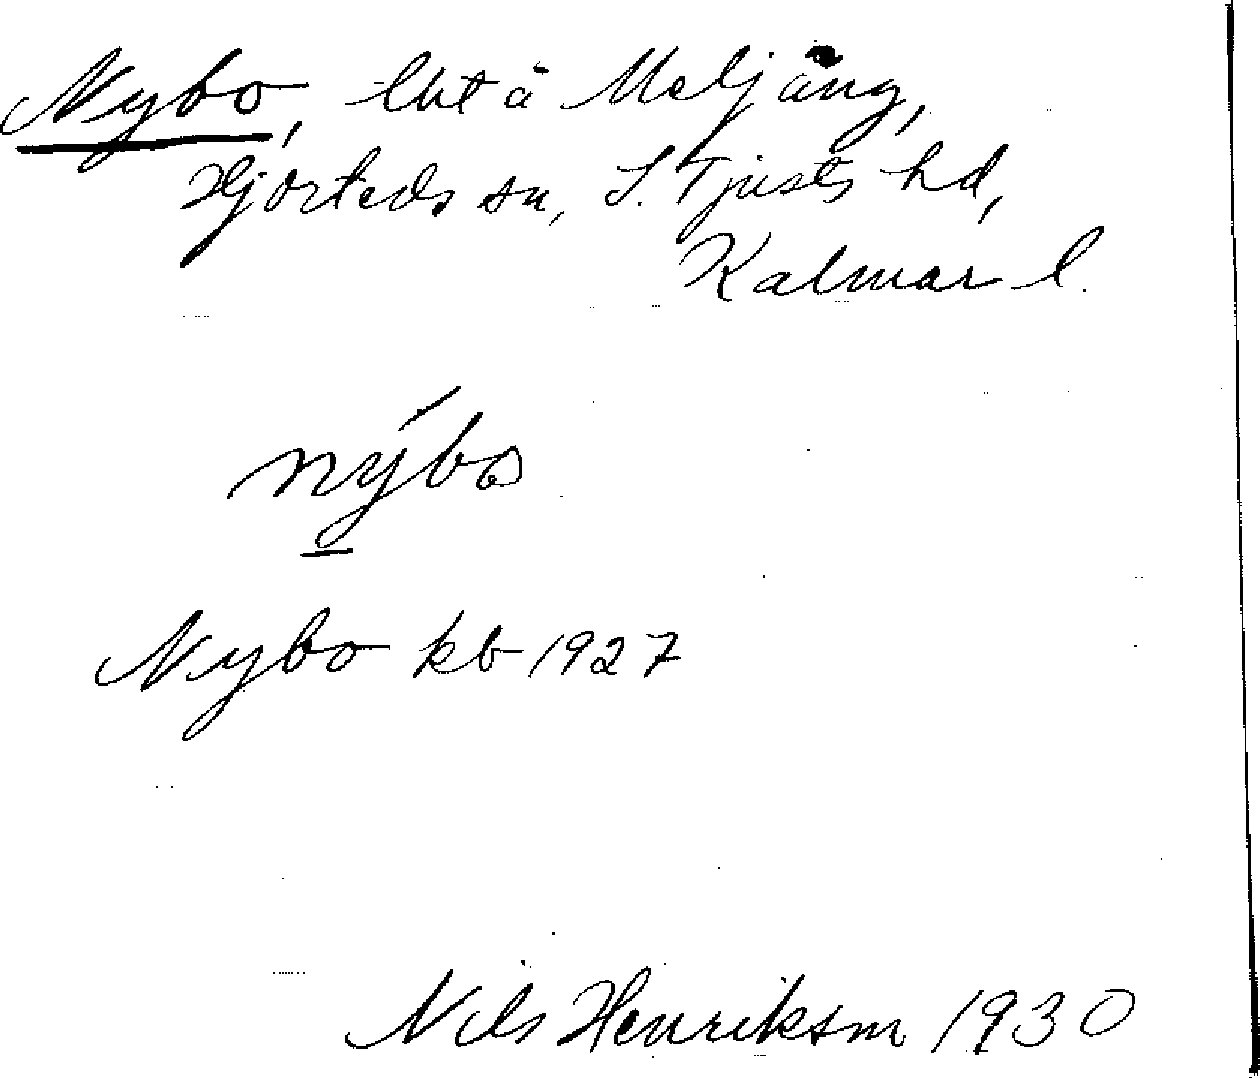 Nybo, lht å Meljäng,
Hjorteds sn, S. Tjusts hd,
Kalmar l.
nýbo
Nybo kb 1927
Nils Henrikson 1930